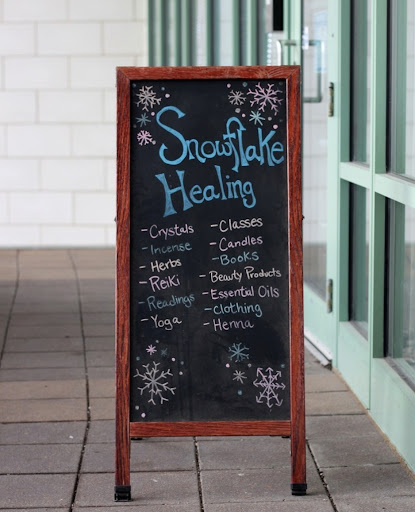 Snowflake
Healing
- Crystals
- Incense
- Herbs
- Reiki
- Readings
- Yoga
- Classes
- Candles
- Books
- Beauty Products
- Essential Oils
- clothing
- Henna